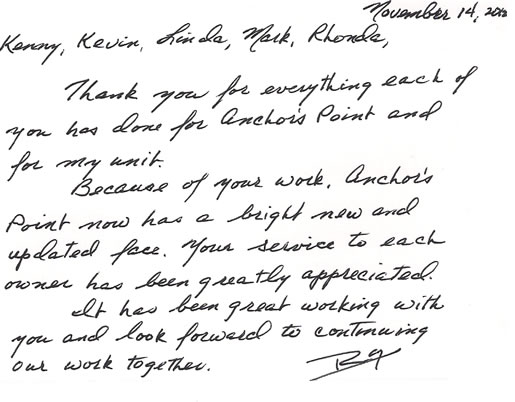 November 14,
Kenny, Kevin, Linda, Mark, Rhonda,
Thank you for everything each of
you has done for Anchor's Point and
for my unit.
Because of your work, Anchor's
Point now has a bright new and
updated face. Your service to each
owner has been greatly appreciated.
It has been great working with
you and look forward to continuing
our work together.